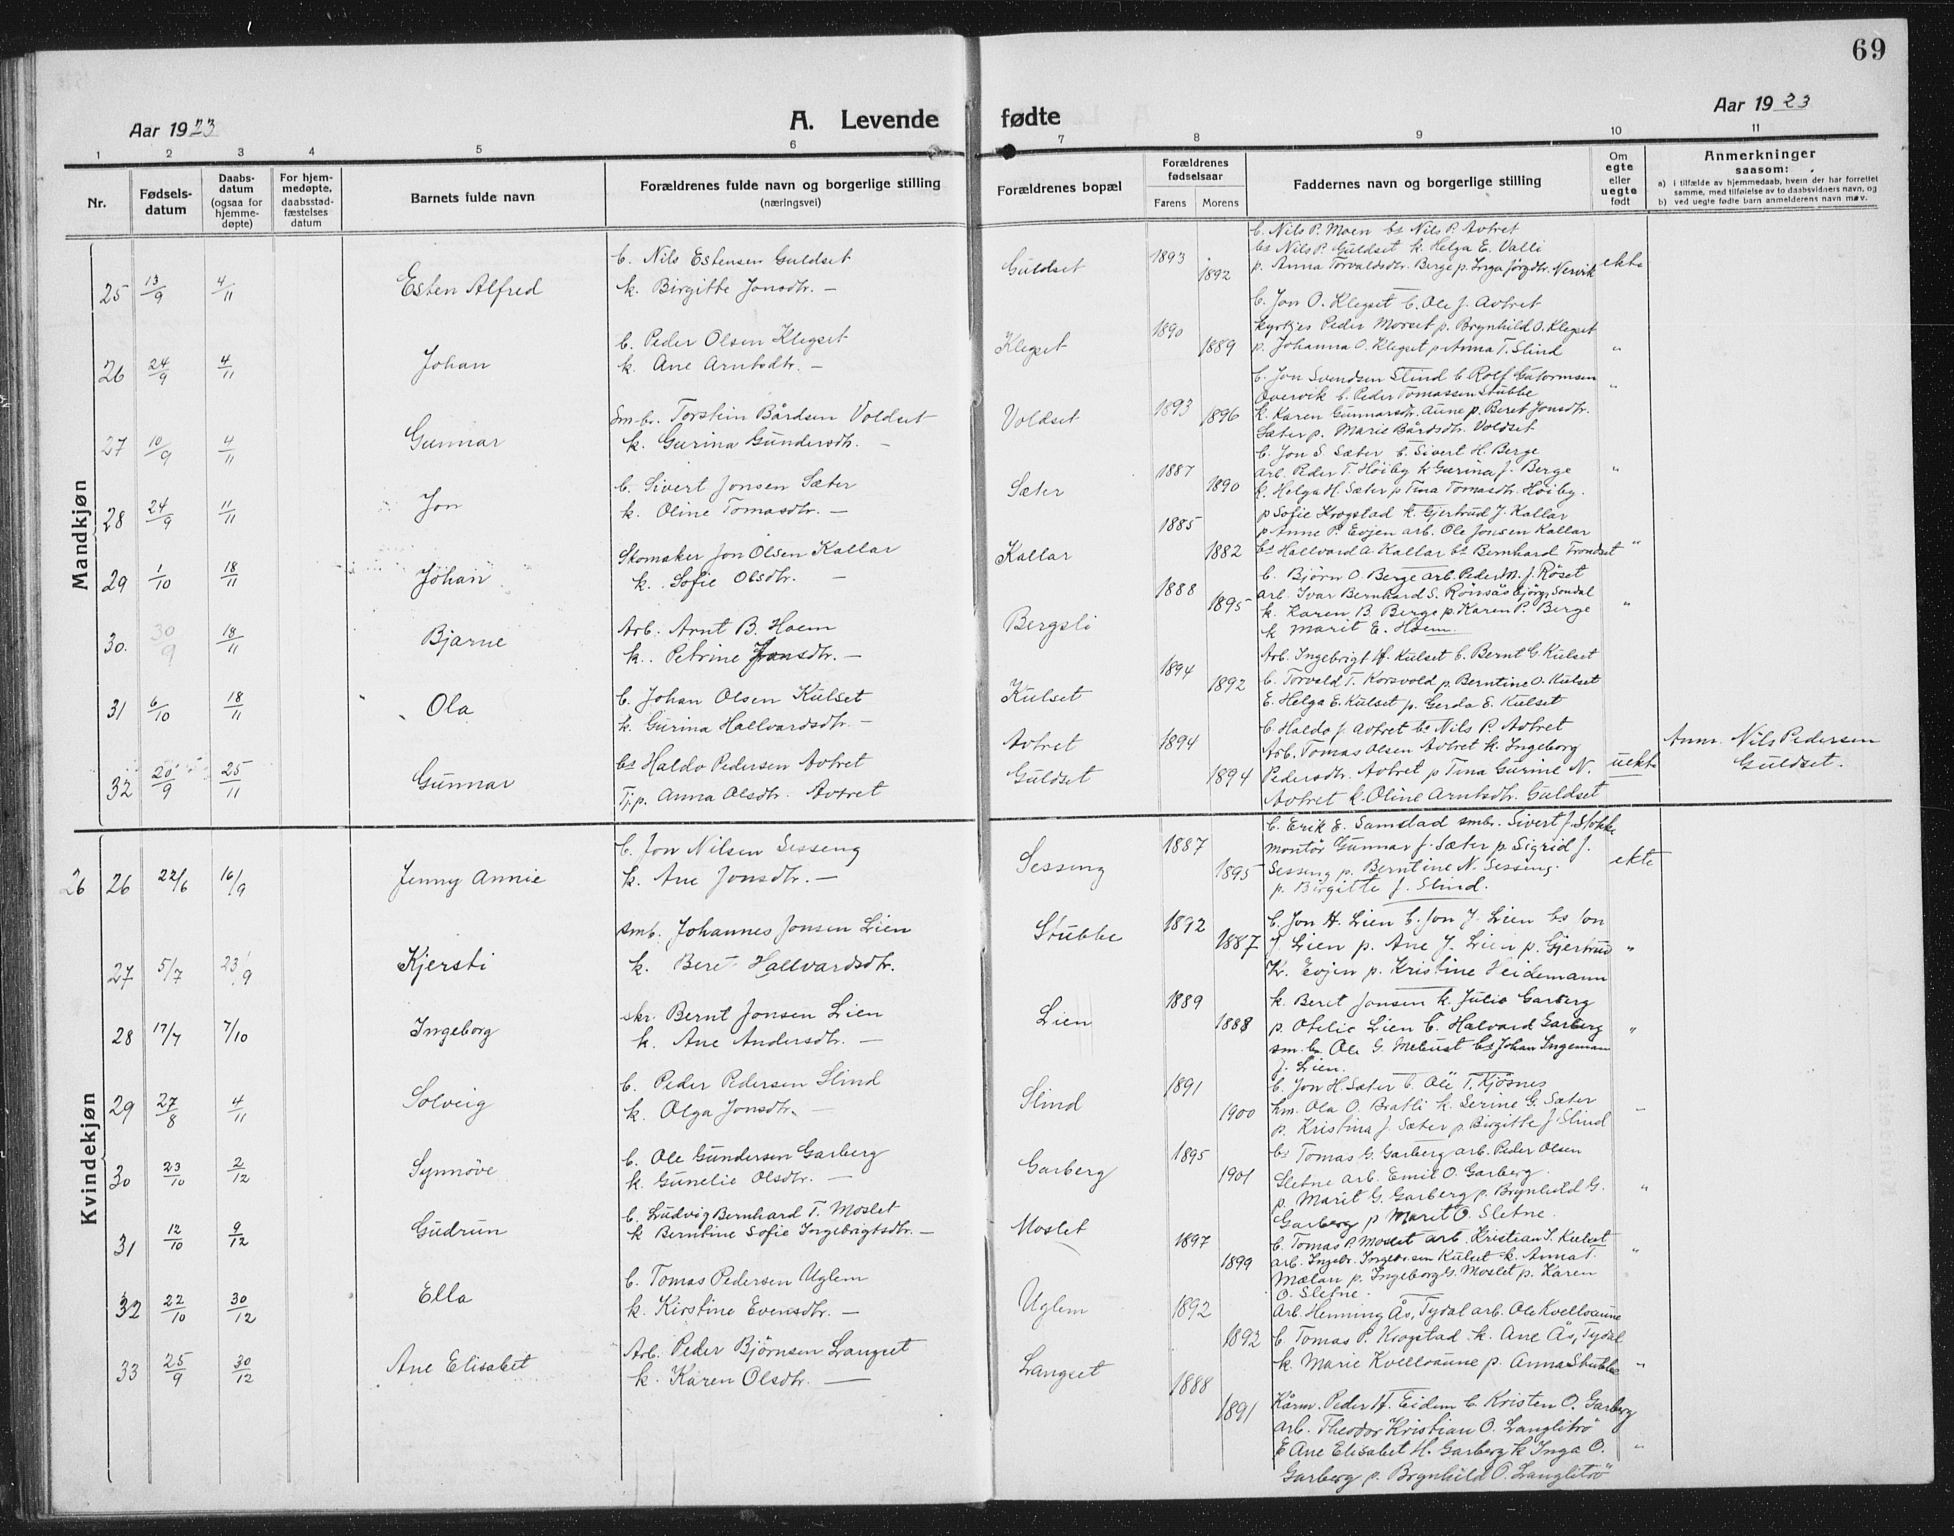 69
Aar 1923
A. Levende fødte
Aar 1923
1 2 3 4 5 6 7 8 9 10 11
Nr.
Fødsels-
datum
Daabs-
datum
(ogsaa for
hjemme-
døpte)
For hjem-
medøpte,
daabsstad-
fæstelses
datum
Barnets fulde navn
Forældrenes fulde navn og borgerlige stilling
(næringsvei)
Forældrenes bopæl
Forældrenes
fødselsaar
Farens Morens
Faddernes navn og borgerlige stilling
Om
egte
eller
uegte
født
Anmerkninger
saasom:
a) i tilfælde av hjemmedaab, hvem der har forrettet
samme, med tilføielse av to daabsvidners navn, og
b) ved uegte fødte barn anmelderens navn m. v.
Mandkjøn
25 13/9 4/11 Esten Alfred
b. Nils Estensen Guldset
k. Birgitte Jonsdtr. —
Guldset 1893 1892
b. Nils P. Moen bs Nils P. Avtret
bs Nils P. Guldset k. Helga E. Valli
p. Anna Torvaldsdtr. Berge p. Inga Jørgdtr. Nervik
ekte
26 24/9 4/11 Johan
b. Peder Olsen Klegset
k. Ane Arntsdtr. —
Klegset 1890 1889
b. Jon O. Klegset b. Ole J. Avtret
kyrkjes Peder Morset p. Brynhild O. Klegset
p. Johanna O. Klegset p Anna T. Slind
"
27 10/9 4/11 Gunnar
Sm.br. Torstein Bårdsen Voldset
k. Gurina Gundersdtr. —
Voldset 1893 1896
b. Jon Svendsen Slind b Rolf Gutormsen
Overvik b. Peder Tomassen Stubbe
k. Karen Gunnarsdtr. Aune p. Beret Jonsdtr.
Sæter p. Marie Bårdsdtr. Voldset
"
28 24/9 11/11 Jon
b. Sivert Jonsen Sæter
k. Oline Tomasdtr. —
Sæter 1887 1890
b. Jon S. Sæter b. Sivert H. Berge
arb. Peder T. Høiby k Gurina J. Berge
k. Helga H. Sæter p Tina Tomasdtr. Høiby.
"
29 1/10 18/11 Johan
Skomaker Jon Olsen Kallar
k. Sofie Olsdtr. —
Kallar 1885 1882
p Sofie Krogstad k. Gjertrud J. Kallar
p Anne P. Evjen arb. Ole Jonsen Kallar
bs Hallvard A Kallar bs Bernhard Trondset
"
30. 30/9 18/11 Bjarne
Arb. Arnt B. Hoem
k. Petrine Jonsdtr. —
Bergsli 1888 1895
b. Bjørn O. Berge arb. Peder M. J. Røset
arb. Ivar Bernhard S. Rönsås Bjørg. Sondal
k. Karen B. Berge p. Karen P. Berge
k Marit E. Hoem.
"
31 6/10 18/11 Ola
b. Johan Olsen Kulset
k. Gurina Hallvardsdtr. —
Kulset 1894 1892
Arb. Ingebrigt H. Kulset b. Bernt G. Kulset
b. Torvald T. Korsvold p. Berntine O. Kulset
E. Helga E. Kulset p. Gerda E. Kulset
32 20/9 25/11 Gunnar
bs Haldo Pedersen Avtret
Tj.p. Anna Olsdtr. Avtret
Avtret
Guldset 1894 1894
b. Haldo J. Avtret bs Nils P. Avtret
Arb. Tomas Olsen Avtret k. Ingeborg
Pedersdtr. Avtret p Tina Gurine N.
Avtret k. Oline Arntsdtr. Guldset
uekte
Anm. Nils Pedersen
Guldset.
Kvindekjøn
26 26 22/6 16/9 Jenny Annie
b. Jon Nilsen Sesseng
k. Ane Jonsdtr. —
Sesseng 1887 1895
b. Erik E. Samstad smbr. Sivert J. Stokke
montör Gunnar J. Sæter p Sigrid J.
Sesseng p. Berntine N. Sesseng.
p. Birgitte J. Slind.
ekte
27 5/7 23/9 Kjersti
smb. Johannes Jonsen Lien
k. Beret Hallvardsdtr.
Stubbe 1892 1887
b. Jon H. Lien b. Jon J. Lien bs Jon
J. Lien p. Ane J. Lien p. Gjertrud
K. Evjen p. Kristine Heidemann
"
28 17/7 7/10 Ingeborg
skr. Bernt Jonsen Lien
k. Ane Andersdtr. —
Lien 1889 1888
k. Beret Jonsen k. Julie Garberg
p. Otelie Lien b. Halvard Garberg
sm. br. Ole G. Mebust bs Johan Ingeman
J. Lien.
"
29 27/8 4/11 Solveig
b. Peder Pedersen Slind
k. Olga Jonsdtr. —
Slind 1891 1900
b. Jon H. Sæter b. Ole T. Kjøsnes
hm. Ola O. Bratli k. Serine G. Sæter
p. Kristina J. Sæter p. Birgitte J. Slind
"
30 23/10 2/12 Synnöve
b. Ole Gundersen Garberg
k. Gunelie Olsdtr. —
Garberg 1895 1901
bs Tomas G. Garberg arb. Peder Olsen
Sletne arb. Emil O. Garberg.
p. Marit G. Garberg p. Brynhild G.
Garberg p Marit O. Sletne.
"
31 12/10 9/12 Gudrun
b. Ludvig Bernhard T. Moslet
k Berntine Sofie Ingebrigtsdtr. —
Moslet 1897 1899
b. Tomas P. Moslet arb. Kristian I. Kulset
arb. Ingebr. Ingebr.sen Kulset k. Anna T.
Mælan p. Ingeborg G. Moslet p. Karen
O. Sletne.
"
32 22/10 30/12 Ella
b. Tomas Pedersen Uglem
k. Kirstine Evensdtr. —
Uglem 1892 1892
Arb. Henning Ås, Tydal arb. Ole Kvelloaune
b. Tomas P. Krogstad k. Ane Ås, Tydal
k. Marie Kvelloaune p. Anna Stubbe
"
33 25/9 30/12 Ane Elisabet
Arb. Peder Bjørnsen Langset
k. Karen Olsdtr. —
Langset 1888 1891
Kårm. Peder H. Eidem b. Kristen O. Garberg
arb. Theodor Kristian O. Langlitrö
E Ane Elisabet H. Garberg k Inga O.
Garberg p. Brynhild O. Langlitrö
"